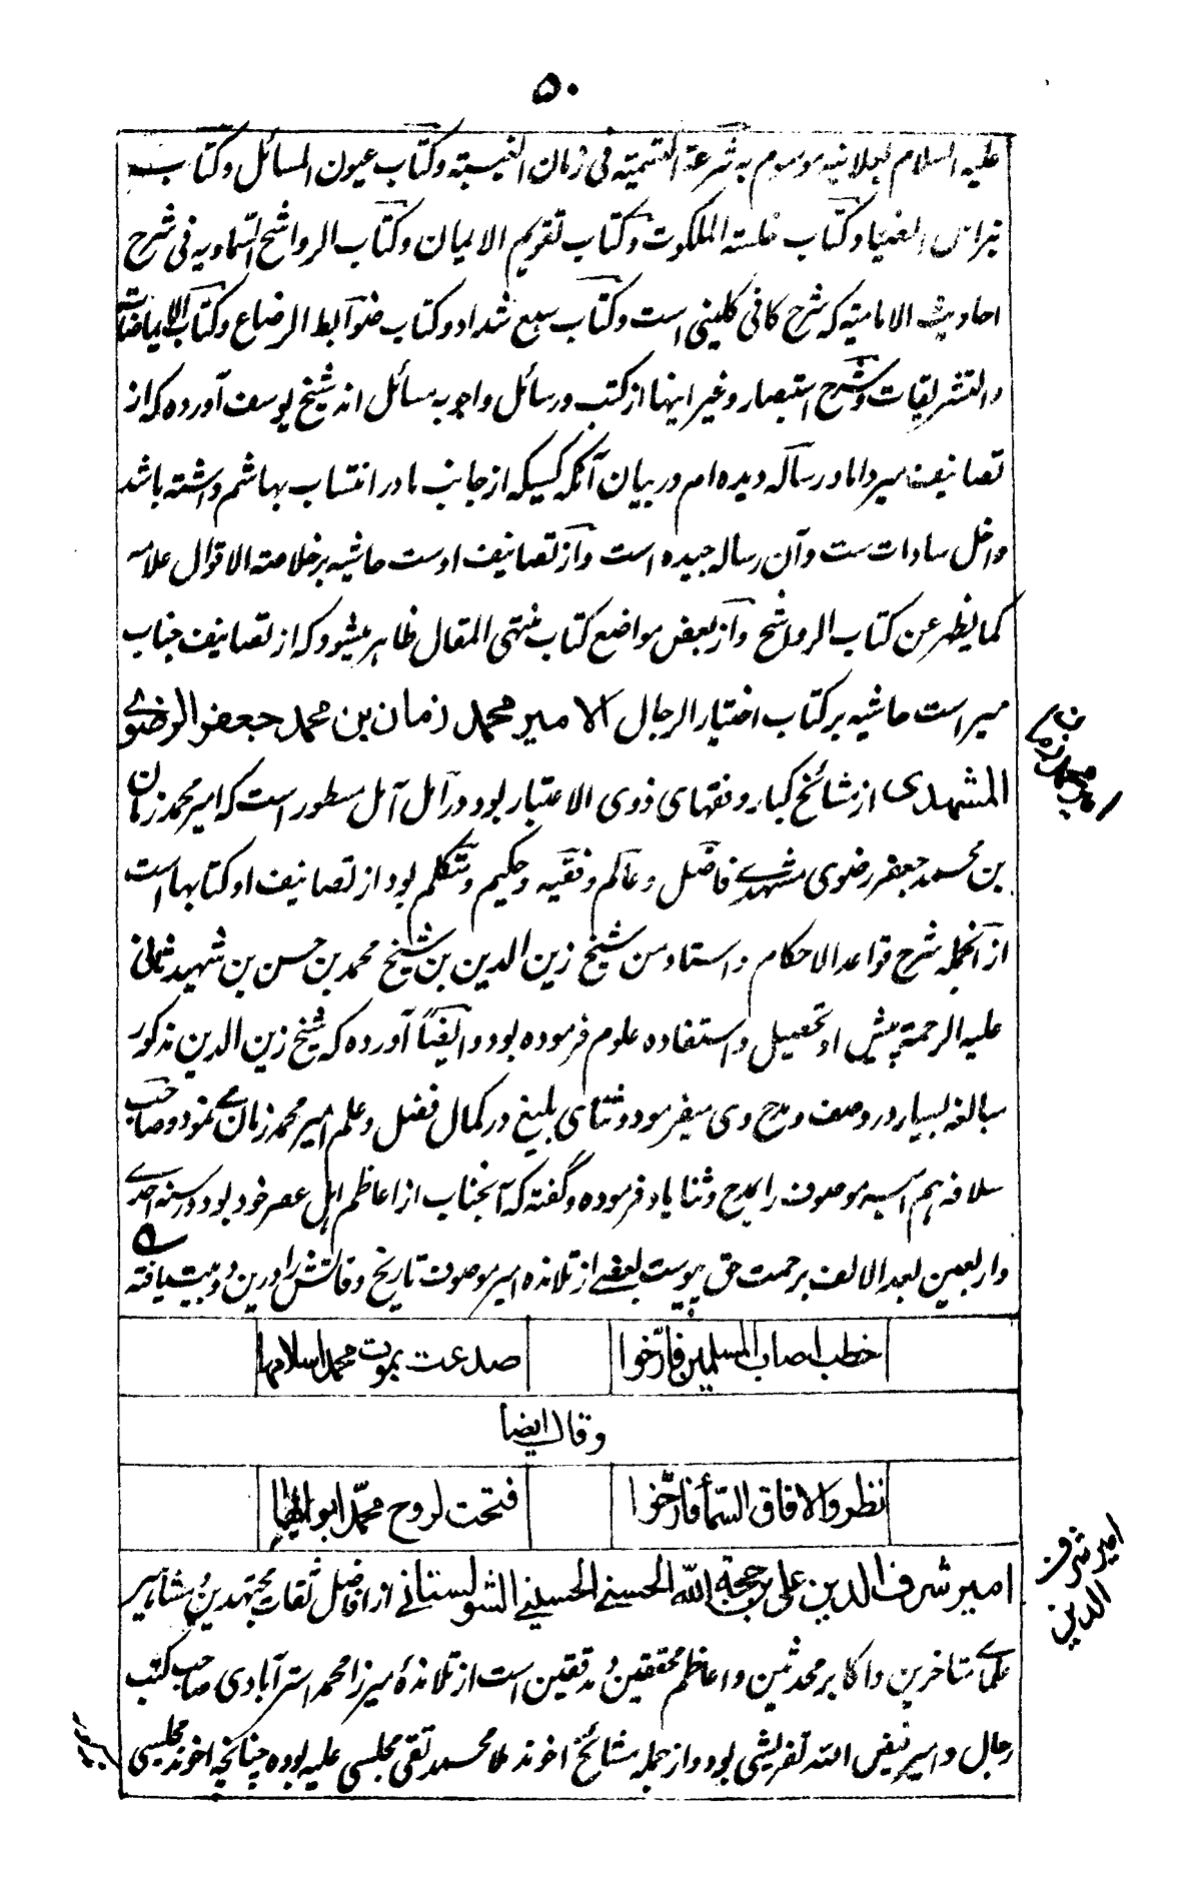 ۵۰
علیه السلام لعلانیه موسوم به شرعة التسمیة فی زمان الغیبة و کتاب عیون المسائل و کتاب
نبراس الضیا و کتاب خلسة الملکوت و کتاب تقویم الایمان و کتاب الرواشح السماویه فی شرح
احادیث الامامیة که شرح کافی کلینی است و کتاب سبع شداد و کتاب ضوابط الرضاع و کتاب الایماضات
والتشریقات و شرح استبصار و غیر اینها از کتب و رسائل و اجوبه مسائل اند شیخ یوسف آورده که از
تصانیف میرداماد رساله دیده ام در بیان آنکه کسیکه از جانب مادر انتساب بهاشم داشته باشد
داخل سادات ست و آن رساله جیده است و از تصانیف اوست حاشیه بر خلاصة الاقوال علامه
کما یظهر عن کتاب الرواشح و از بعض مواضع کتاب منتهی المقال ظاهر میشود که از تصانیف جناب
میر است حاشیه بر کتاب اختیار الرجال الامیر محمد زمان بن محمد جعفر الرضوی
المشهدی از مشائخ کبار و فقهای ذوی الاعتبار بود در امل آمل مسطور است که امیر محمد زمان
بن محمد جعفر رضوی مشهدی فاضل و عالم و فقیه و حکیم و متکلم بود از تصانیف او کتابها است
از آنجمله شرح قواعد الاحکام و استاد من شیخ زین الدین بن شیخ محمد بن حسن بن شهید ثانی
علیه الرحمة پیش او تحصیل و استفاده علوم فرموده بود و ایضاً آورده که شیخ زین الدین مذکور
مبالغه بسیار در وصف و مدح وی میفرمود و ثنای بلیغ در کمال فضل و علم امیر محمد زمان می نمود و صاحب
سلافه هم امیر موصوف را بمدح و ثنا یاد فرموده و گفته که آنجناب از اعاظم اهل عصر خود بود در سنه احدی
و اربعین بعد الالف برحمت حق پیوست بعضے از تلامذه امیر موصوف تاریخ وفاتش را درین دو بیت یافته
خطب اصاب المسلمین فارّخوا
صدعت بموت محمد اسلامها
و قال ایضا
نظروا الافاق السماء فارّخوا
فتحت لروح محمّد ابوابها
امیر شرف الدین علی بن حجة الله الحسنے الحسینے الشولستانے از افاضل ثقات مجتهدین و مشاهیر
علمای متاخرین و اکابر محدثین و اعاظم محققین و مدققین است از تلامذهٔ میرزا محمد استرآبادی صاحب کتب
رجال و امیر فیض الله تفریشی بود و از جمله مشائخ اخوند ملا محمد تقی مجلسی علیه بوده چنانچه اخوند مجلسی
امیر محمد زمان
امیر شرف الدین